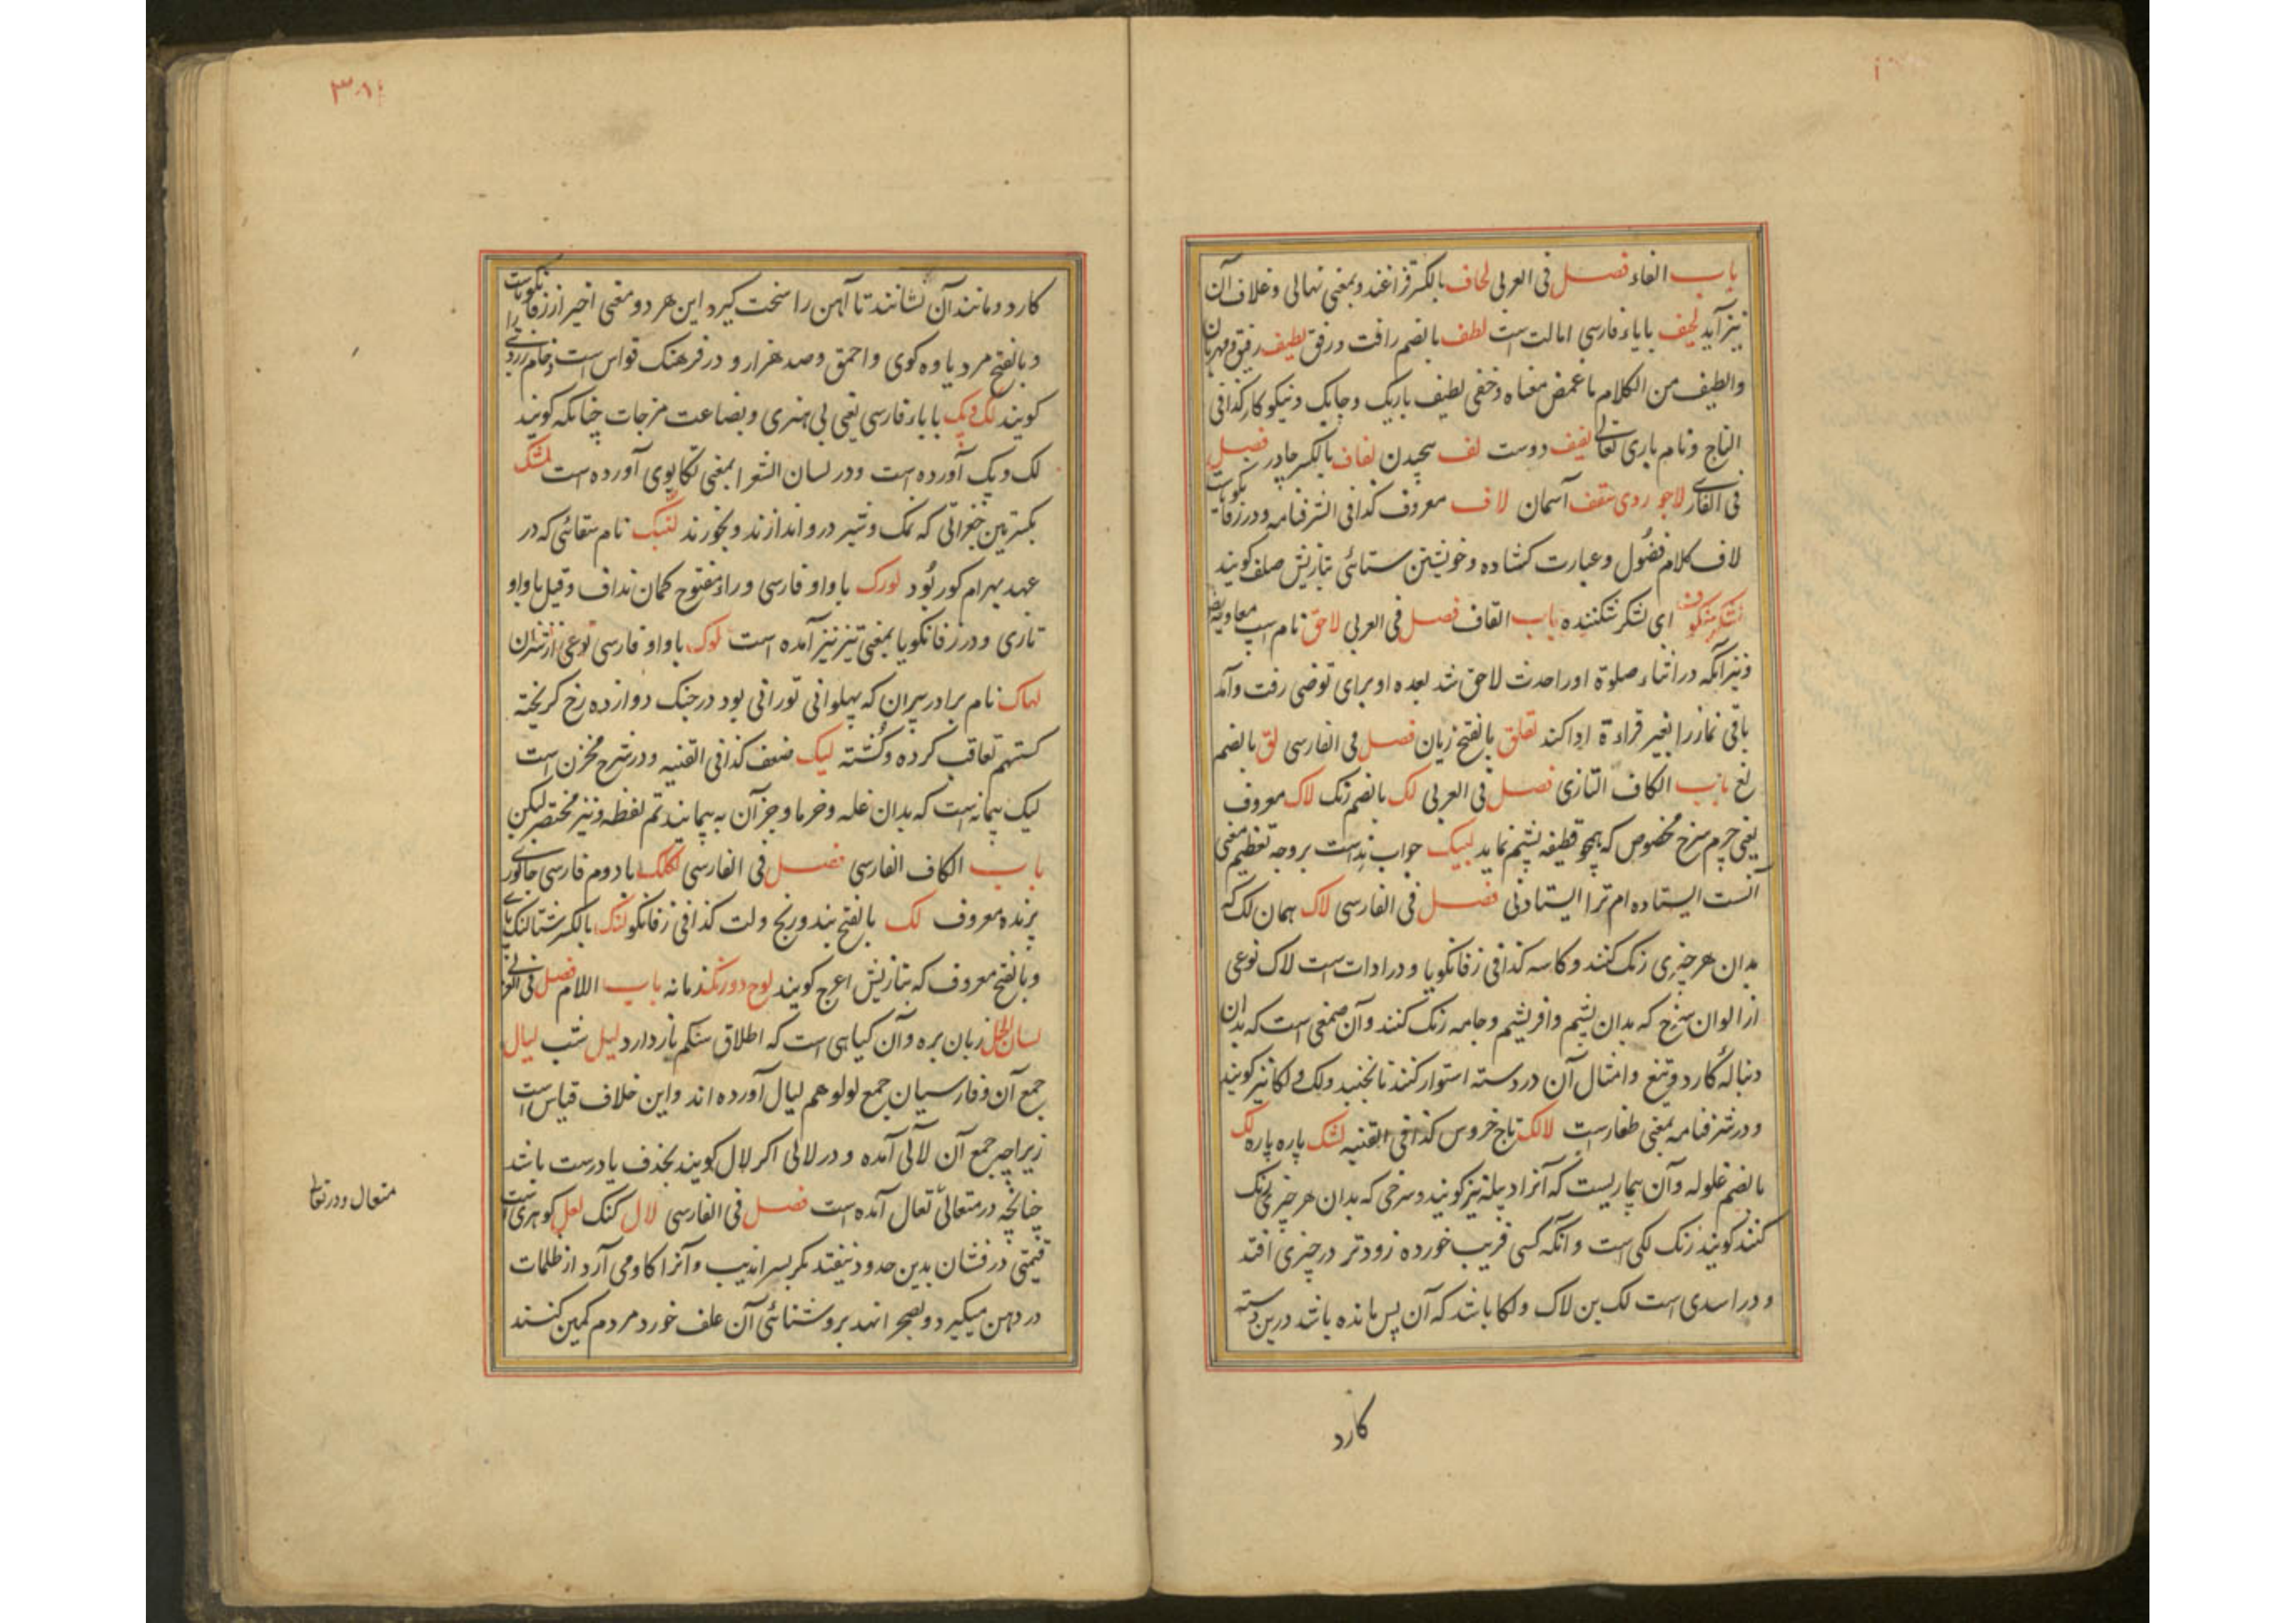 باب الفاء فصل فی العربی لحاف بالکسر قزاغند و بمعنی نهالی و غلاف آن
نیز آید لحیف بایاء فارسی امالت است لطف بالضم رافت و رفق لطیف رفیق و مهربان
والطیف من الکلام ما غمض معناه و خفی لطیف باریک و چابک و نیکو کار کذا فی
التاج و نام باری تعالی لفیف دوست لف پیچیدن لفاف بالکسر چادر فصل
فی الفارسی لاجوردی سقف آسمان لاف معروف کذا فی الشرفنامه و در زفانکویاست
لاف کلام فضول و عبارت کشاده و خویشتن ستائی بتازیش صلف کویند
لشکر شکوف ای لشکر شکننده باب القاف فصل فی العربی لاحق نام اسپ معاویه
و نیز آنکه در اثناء صلوة او را حدث لاحق شد بعده او برای توضی رفت و آمد
باقی نماز را بغیر قراءة ادا کند لقلق بالفتح زبان فصل فی الفارسی لق بالضم
لغ باب الکاف التازی فصل فی العربی لک بالضم رنک لاک معروف
یعنی چرم سرخ مخصوص که همچو قطیفه پشم نماید لبیک جواب نداست بر وجه تعظیم معنی
آنست ایستاده ام ترا ایستادنی فصل فی الفارسی لاک همان لک که
بدان هر چیزی رنک کنند و کاسه کذا فی زفانکویا و در ادات است لاک نوعی
از الوان سرخ که بدان پشم و افریشم و جامه رنک کنند و آن صمغی است که بدان
دنباله کارد و تیغ و امثال آن در دسته استوار کنند تا نجنبد و لک و لکا نیز کویند
و در شرفنامه بمعنی طغارست لالک تاج خروس کذا فی القنیه لشک پاره پاره لک
بالضم غلوله و آن بیماریست که آنرا دبیله نیز کویند و سرخی که بدان هر چیزی رنک
کنند کویند رنک لکی است و آنکه کسی فریب خورده زودتر در چیزی افتد
و در اسدی است لک بن لاک و لکا باشد که آن پس مانده باشد در بن دسته
کارد
کارد و مانند آن نشانند تا آهن را سخت کیرد این هر دو معنی اخیر از زفانکویاست
و بالفتح مرد یاوه کوی و احمق و صد هزار و در فرهنک قواس است و خام ردی را
کویند لک و پک با باء فارسی یعنی بی هنری و بضاعت مزجات چنانکه کویند
لک و پک آورده است و در لسان الشعرا بمعنی تکاپوی آورده است لشک
بکسرتین جغراتی که نمک و شیر درو اندازند و بخورند لنبک نام سقائی که در
عهد بهرام کور بُود لورک با واو فارسی و راء مفتوح کمان نداف و قیل با واو
تازی و در زفانکویا بمعنی تیز نیز آمده است لوک با واو فارسی نوعی از شتران
لهاک نام برادر پیران که پهلوانی تورانی بود در جنک دوازده رخ کریخته
کستهم تعاقب کرده و کُشته لیک ضعف کذا فی القنیه و در شرح مخزن است
لیک پیمانه است که بدان غله و خرما و جز آن به پیمایند تم لفظه و نیز مختصر لیکن
باب الکاف الفارسی فصل فی الفارسی لکلک با دوم فارسی جانوری
پرنده معروف لک بالفتح بند و رنج و لت کذا فی زفانکو لنک بالکسر شتالنک پای
و بالفتح معروف که بتازیش اعرج کویند لوح دو رنک زمانه باب اللام فصل فی العربی
لسان الحمل زبان بره و آن کیاهی است که اطلاق شکم باز دارد لیل شب لیال
جمع آن و فارسیان جمع لولو هم لیال آورده اند و این خلاف قیاس است
زیرا چه جمع آن لآلی آمده و در لالی اکر لال کویند بحذف یا درست باشد
چنانچه در متعالی تعال آمده است فصل فی الفارسی لال کنک لعل کوهری است
قیمتی درفشان بدین حدود نیفتد مکر بسراندیب و آنرا کاو می آرد از ظلمات
در دهن میکیرد و بصحرا نهد بروشنائی آن علف خورد مردم کمین کنند
متعال و در تعالی